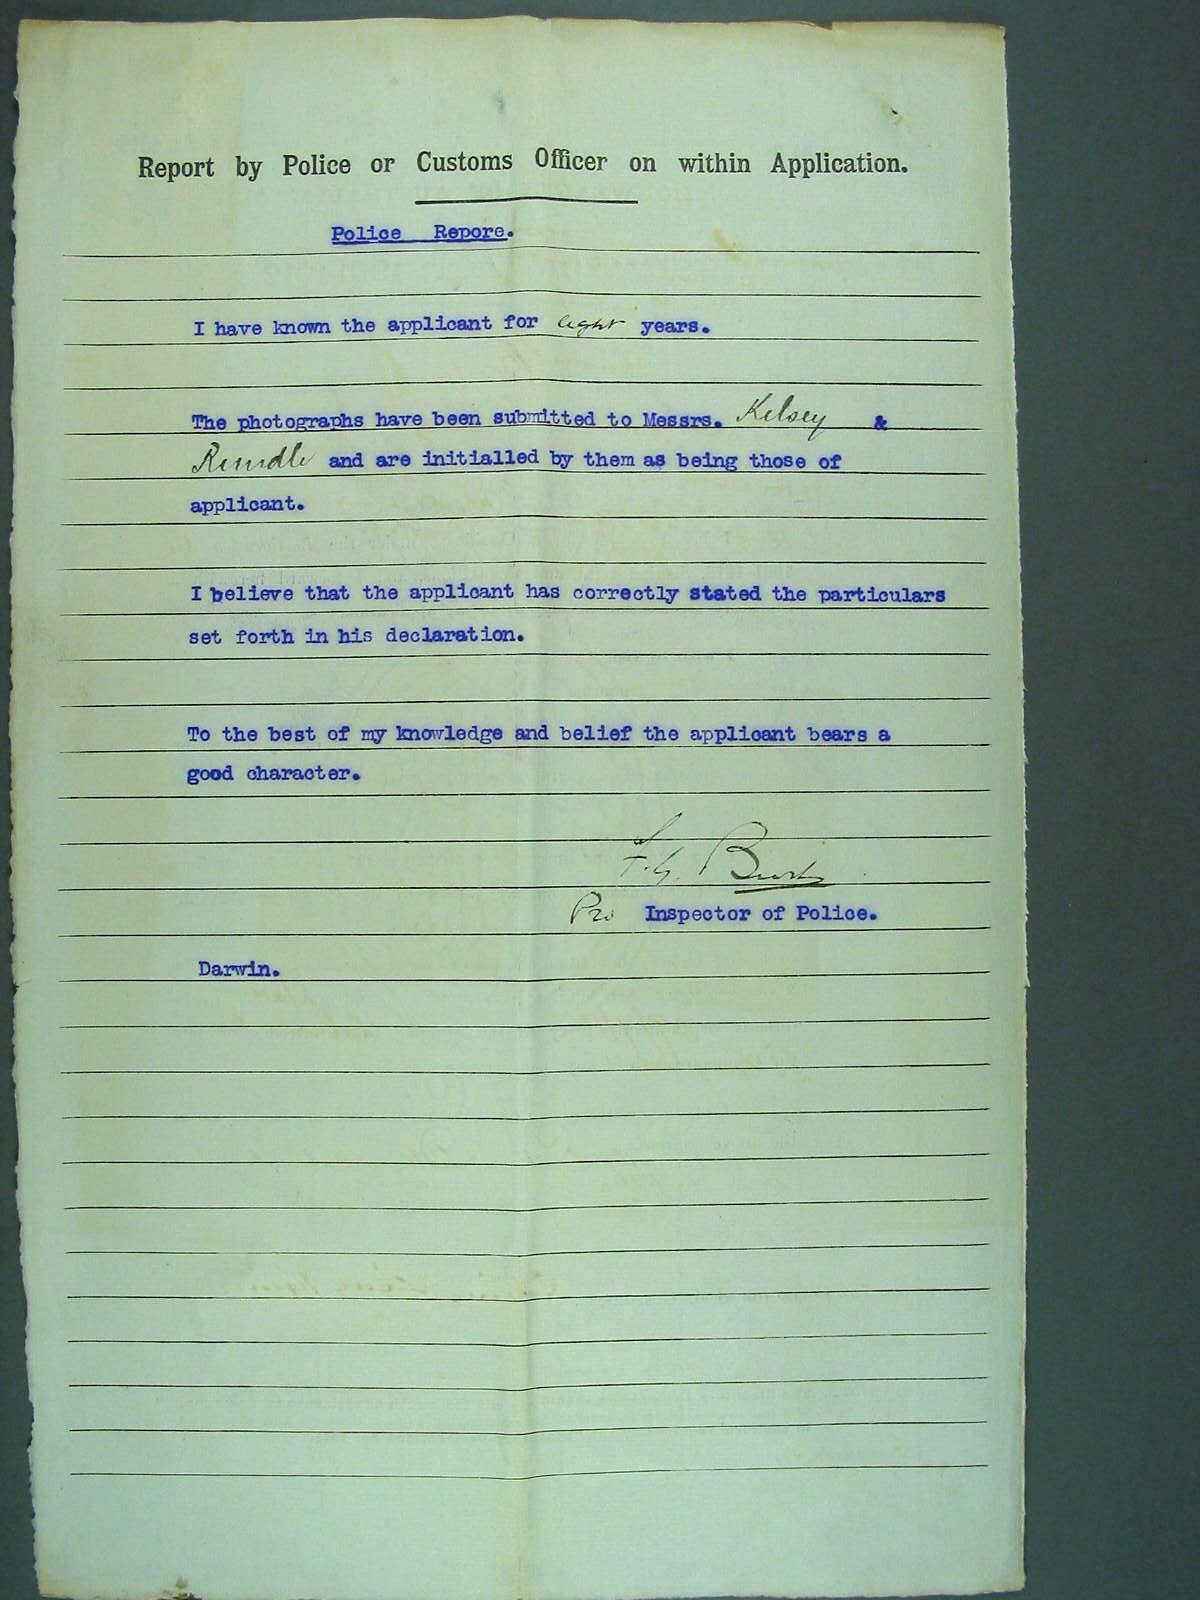 Report by Police or Customs Officer on within Application.
Police Repore.
I have known the applicant for eight years.
The photographs have been submitted to Messrs. Kelsey &
Rundle and are initialled by them as being those of
applicant.
I believe that the applicant has correctly stated the particulars
set forth in his declaration.
To the best of my knowledge and belief the applicant bears a
good character.
F. G. Burt
Pro Inspector of Police.
Darwin.